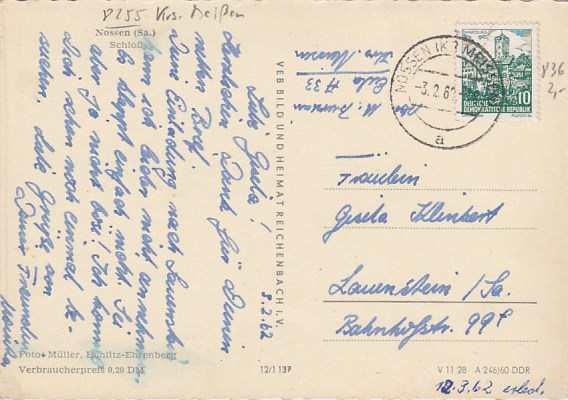 8255 Krs. Meißen
Nossen (Sa.)
Schloß
Liebe Gisela!
Herzlichen Dank für Deinen
netten Brief.
Deine Einladung nach Lauenstein
kann ich leider nicht annehmen.
Es klappt einfach nicht. Sei
aber So nicht böse! Ich komme
Dich schon noch einmal be-
suchen. Liebe Grüße von
Deiner Freundin
Monika
8.2.62
Foto: Müller, Böhlitz-Ehrenberg
Verbraucherpreis 0,20 DM
VEB BILD UND HEIMAT REICHENBACH I. V.
12/1137
Abs. M.
Krs. Meissen
NOSSEN (KR MEISSEN)
-3.2.62
a
DEUTSCHE
DEMOKRATISCHE REPUBLIK
10
V36
2,-
Fräulein
Gisela Kleinhert
Lauenstein / Sa.
Bahnhofstr. 99 f
V 11 28 A 246/60 DDR
12.3.62 erled.